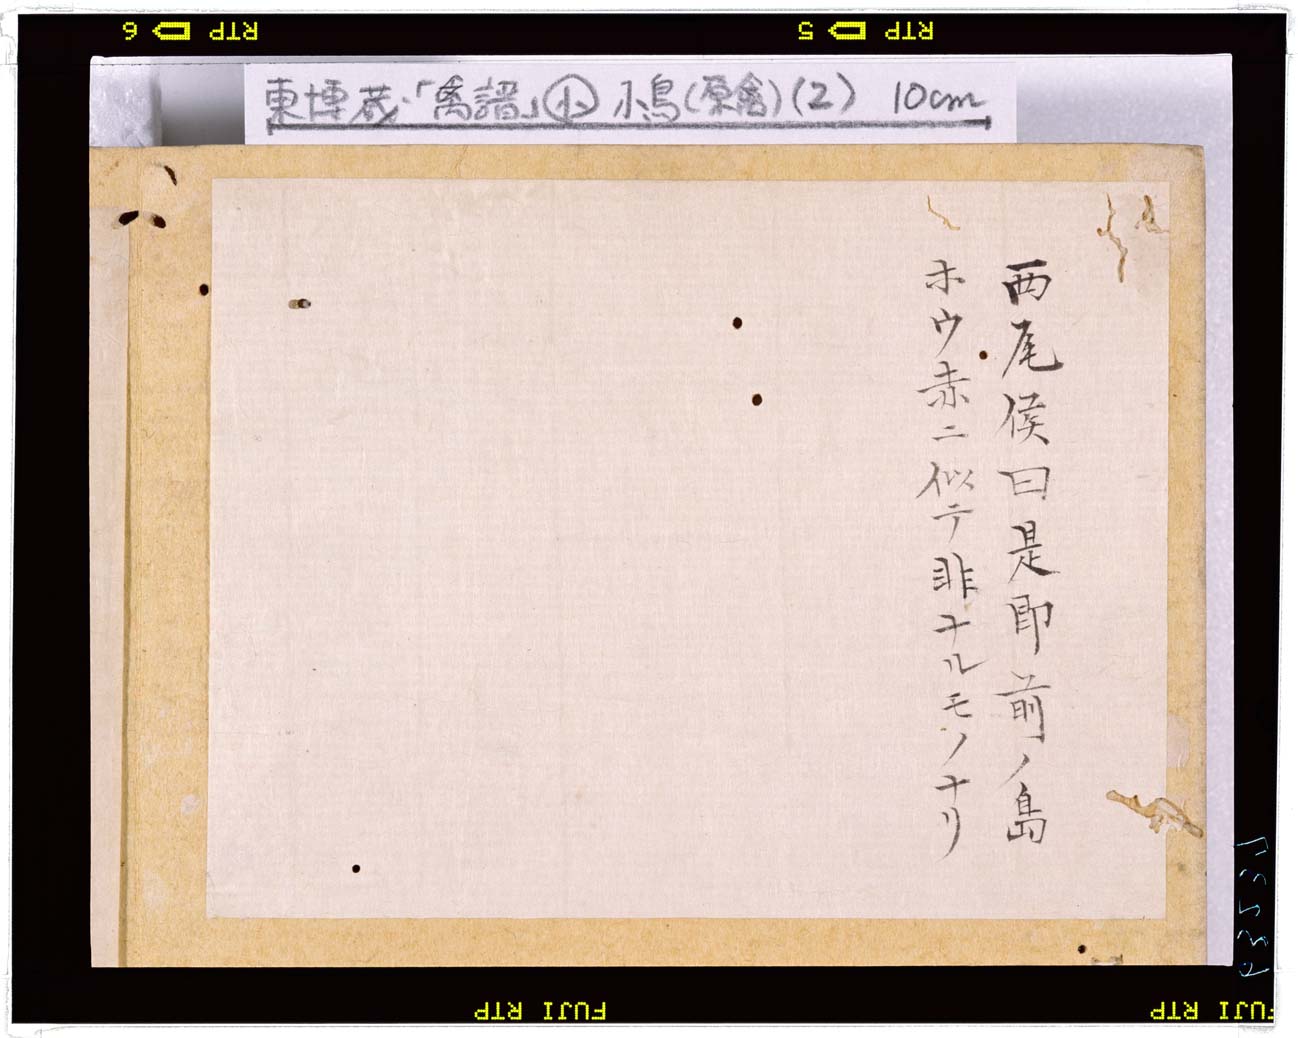 RTP 6
RTP 5
東博蔵・「禽譜」㋣ 小鳥(原禽)(2) 10cm
西尾侯曰是即前ノ島
ホウ赤ニ似テ非ナルモノナリ
FUJI RTP
FUJI RTP